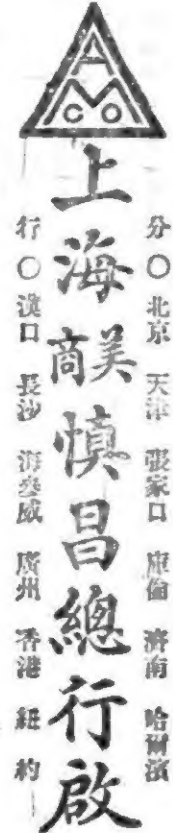 AMCO
上海美商慎昌總行啟
分〇北京 天津 張家口 庫倫 濟南 哈爾濱
行〇漢口 長沙 海參威 廣州 香港 紐約